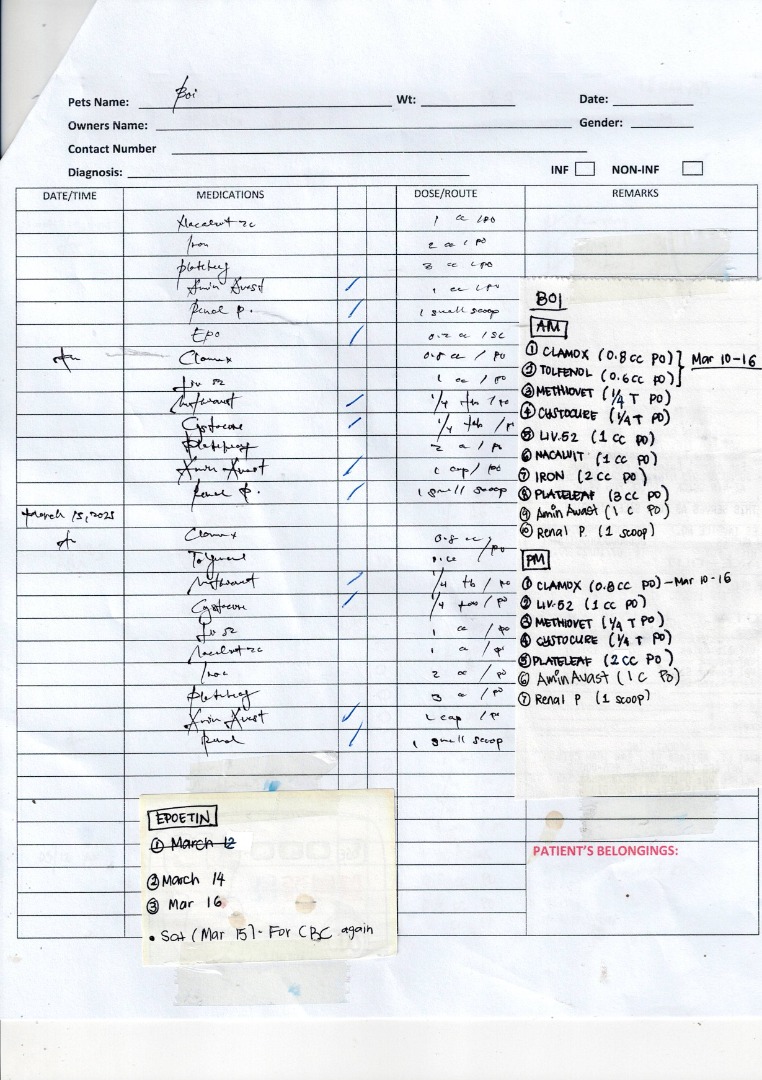 Pets Name: Boi Wt: Date:
Owners Name: Gender:
Contact Number
Diagnosis: INF NON-INF
DATE/TIME MEDICATIONS DOSE/ROUTE REMARKS
1 cc / PO
Iron 2 cc / PO
3 cc / PO
Amin Avast 1 cc / PO
Renal P. 1 small scoop
Epo 0.2 cc / SC
Clamox 0.8 cc / PO
Liv 52 1 cc / PO
1/4 tab / PO
Cystocure 1/4 tab / PO
2 cc / PO
Amin Avast 1 cap / PO
Renal P. 1 small scoop
March 15, 2025
Clamox 0.8 cc / PO
1/4 tb / PO
Cystocure 1/4 / PO
Liv 52 1 cc / PO
1 cc / PO
2 cc / PO
3 cc / PO
Amin Avast 1 cap / PO
Renal 1 small scoop
BOI
AM
① CLAMOX (0.8 cc PO) } Mar 10-16
② TOLFENOL (0.6 cc PO)
③ METHIOVET (1/4 T PO)
④ CYSTOCURE (1/4 T PO)
⑤ LIV.52 (1 cc PO)
⑥ NACALVIT (1 cc PO)
⑦ IRON (2 cc PO)
⑧ PLATELEAF (3 cc PO)
⑨ Amin Avast (1 C PO)
⑩ Renal P. (1 scoop)
PM
① CLAMOX (0.8 cc PO) - Mar 10-16
② LIV.52 (1 cc PO)
③ METHIOVET (1/4 T PO)
④ CYSTOCURE (1/4 T PO)
⑤ PLATELEAF (2 CC PO)
⑥ Amin Avast (1 C PO)
⑦ Renal P (1 scoop)
EPOETIN
① March 12
② March 14
③ Mar 16
• Sat (Mar 15) - For CBC again
PATIENT'S BELONGINGS: